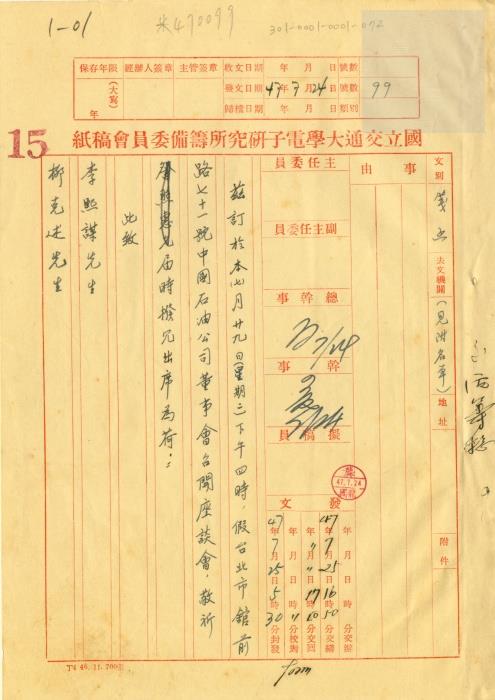 1-01
米470099
301-0001-0001-072
保存年限
(大寫)
年
經辦人簽章
主管簽章
收文日期 年 月 日
發文日期 47年7月24日
歸檔日期 年 月 日
號數
號數 99
類別
15
國立交通大學電子研究所籌備委員會稿紙
文別 箋函
去文機關 (見附名單)
地址
附件
事由
主任委員
副主任委員
總幹事
7/24
幹事
7/24
擬稿員
47.7.24
發文
47年7月25日16時50分交辦
〃年〃月〃日17時10分交繕
年月日時分交回
〃年〃月〃日〃時〃分校對
47年7月25日5時30分封發
茲訂於本七月廿九日(星期二)下午四時,假台北市館前
路七十一號中國石油公司董事會召開座談會,敬祈
屆時撥冗出席為荷:
此致
李熙謀先生
柳克述先生
T4 46.11.700
form